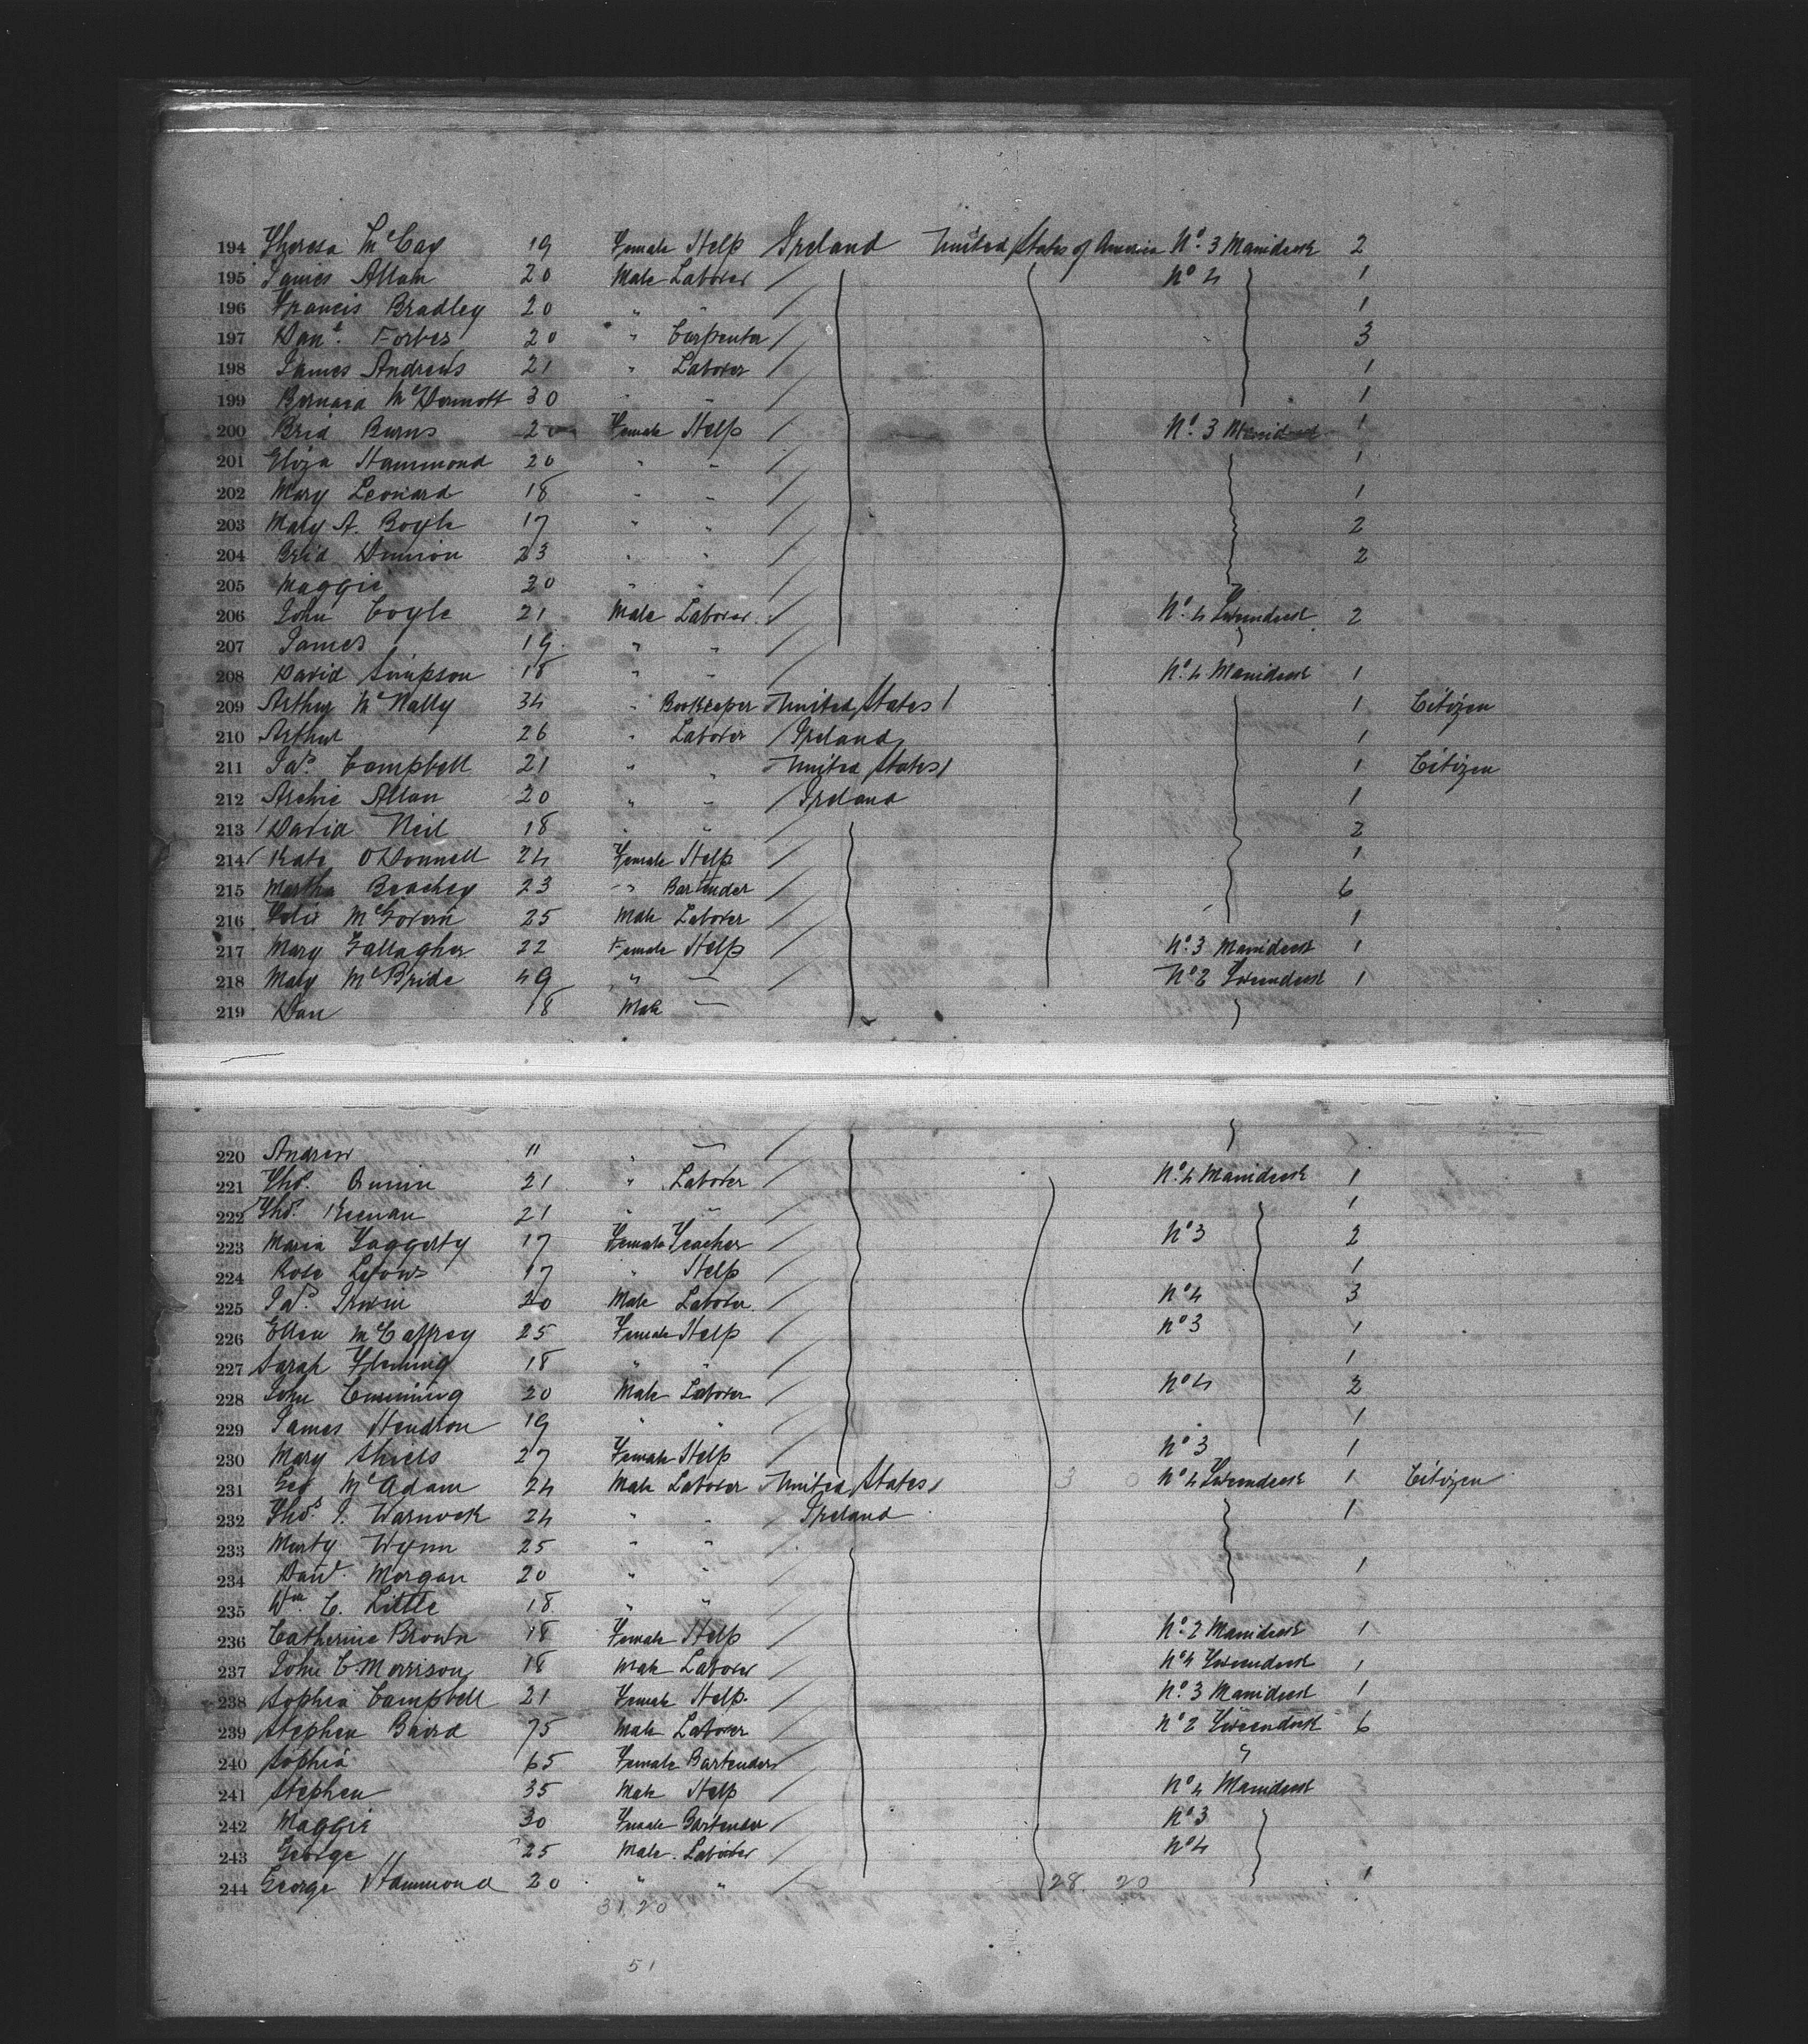 194 Theresa McCay 19 Female Help Ireland United States of America No. 3 Maindeck 2
195 James Allan 20 Male Laborer / No 4 1
196 Francis Bradley 20 " " / 1
197 Danl. Forbes 20 " Carpenter / 3
198 James Andrews 21 " Laborer / 1
199 Bernard McDermott 30 " " / 1
200 Brid Burns 20 Female Help / No. 3 Maindeck 1
201 Eliza Hammond 20 " " / 1
202 Mary Leonard 18 " " / 1
203 Mary A. Boyle 17 " " / 2
204 Brid Dunion 23 " " / 2
205 Maggie 20 " " /
206 John Coyle 21 Male Laborer / No. 4 Tweendeck 2
207 James 19 " " /
208 David Simpson 18 " " / No. 4 Maindeck 1
209 Arthur McNally 34 " Bookkeeper United States / 1 Citizen
210 Arthur 26 " Laborer / Ireland 1
211 Jas. Campbell 21 " " United States / 1 Citizen
212 Archie Allan 20 " " / Ireland 1
213 David Neil 18 " " / 2
214 Kate O'Donnell 24 Female Help / 1
215 Martha Beachey 23 " Bartender / 6
216 McGovern 25 Male Laborer / 1
217 Mary Gallagher 22 Female Help / No. 3 Maindeck 1
218 Mary McBride 49 " — / No 2 Tweendeck 1
219 Dan 18 Male —
220 Andrew 11 " — /
221 Thos. Quinn 21 " Laborer / No. 4 Maindeck 1
222 Thos. Keenan 21 " " / 1
223 Maria Haggerty 17 Female Teacher / No 3 2
224 Rose 17 " Help / 1
225 Jas. Irwin 20 Male Laborer / No 4 3
226 Ellen McCaffrey 25 Female Help / No 3 1
227 Sarah Fleming 18 " " / 1
228 John Cumming 20 Male Laborer / No 4 2
229 James Hendron 19 " " / 1
230 Mary Shiels 27 Female Help / No 3 1
231 Geo McAdam 24 Male Laborer United States / 3 0 No 4 Tweendeck 1 Citizen
232 Thos. J. Warnock 24 " " / Ireland 1
233 Marty Wynn 25 " " /
234 Danl. Morgan 20 " " / 1
235 Wm. C. Little 18 " " /
236 Catherine Brown 18 Female Help / No. 2 Maindeck 1
237 John C Morrison 18 Male Laborer / No 4 Tweendeck 1
238 Sophia Campbell 21 Female Help / No. 3 Maindeck 1
239 Stephen Baird 75 Male Laborer / No 2 Tweendeck 6
240 Sophia 65 Female Bartender /
241 Stephen 35 Male Help / No 4 Maindeck
242 Maggie 30 Female Bartender / No 3
243 George 25 Male Laborer / No 4
244 George Hammond 20 " " / 28. 20 1
31 20
51